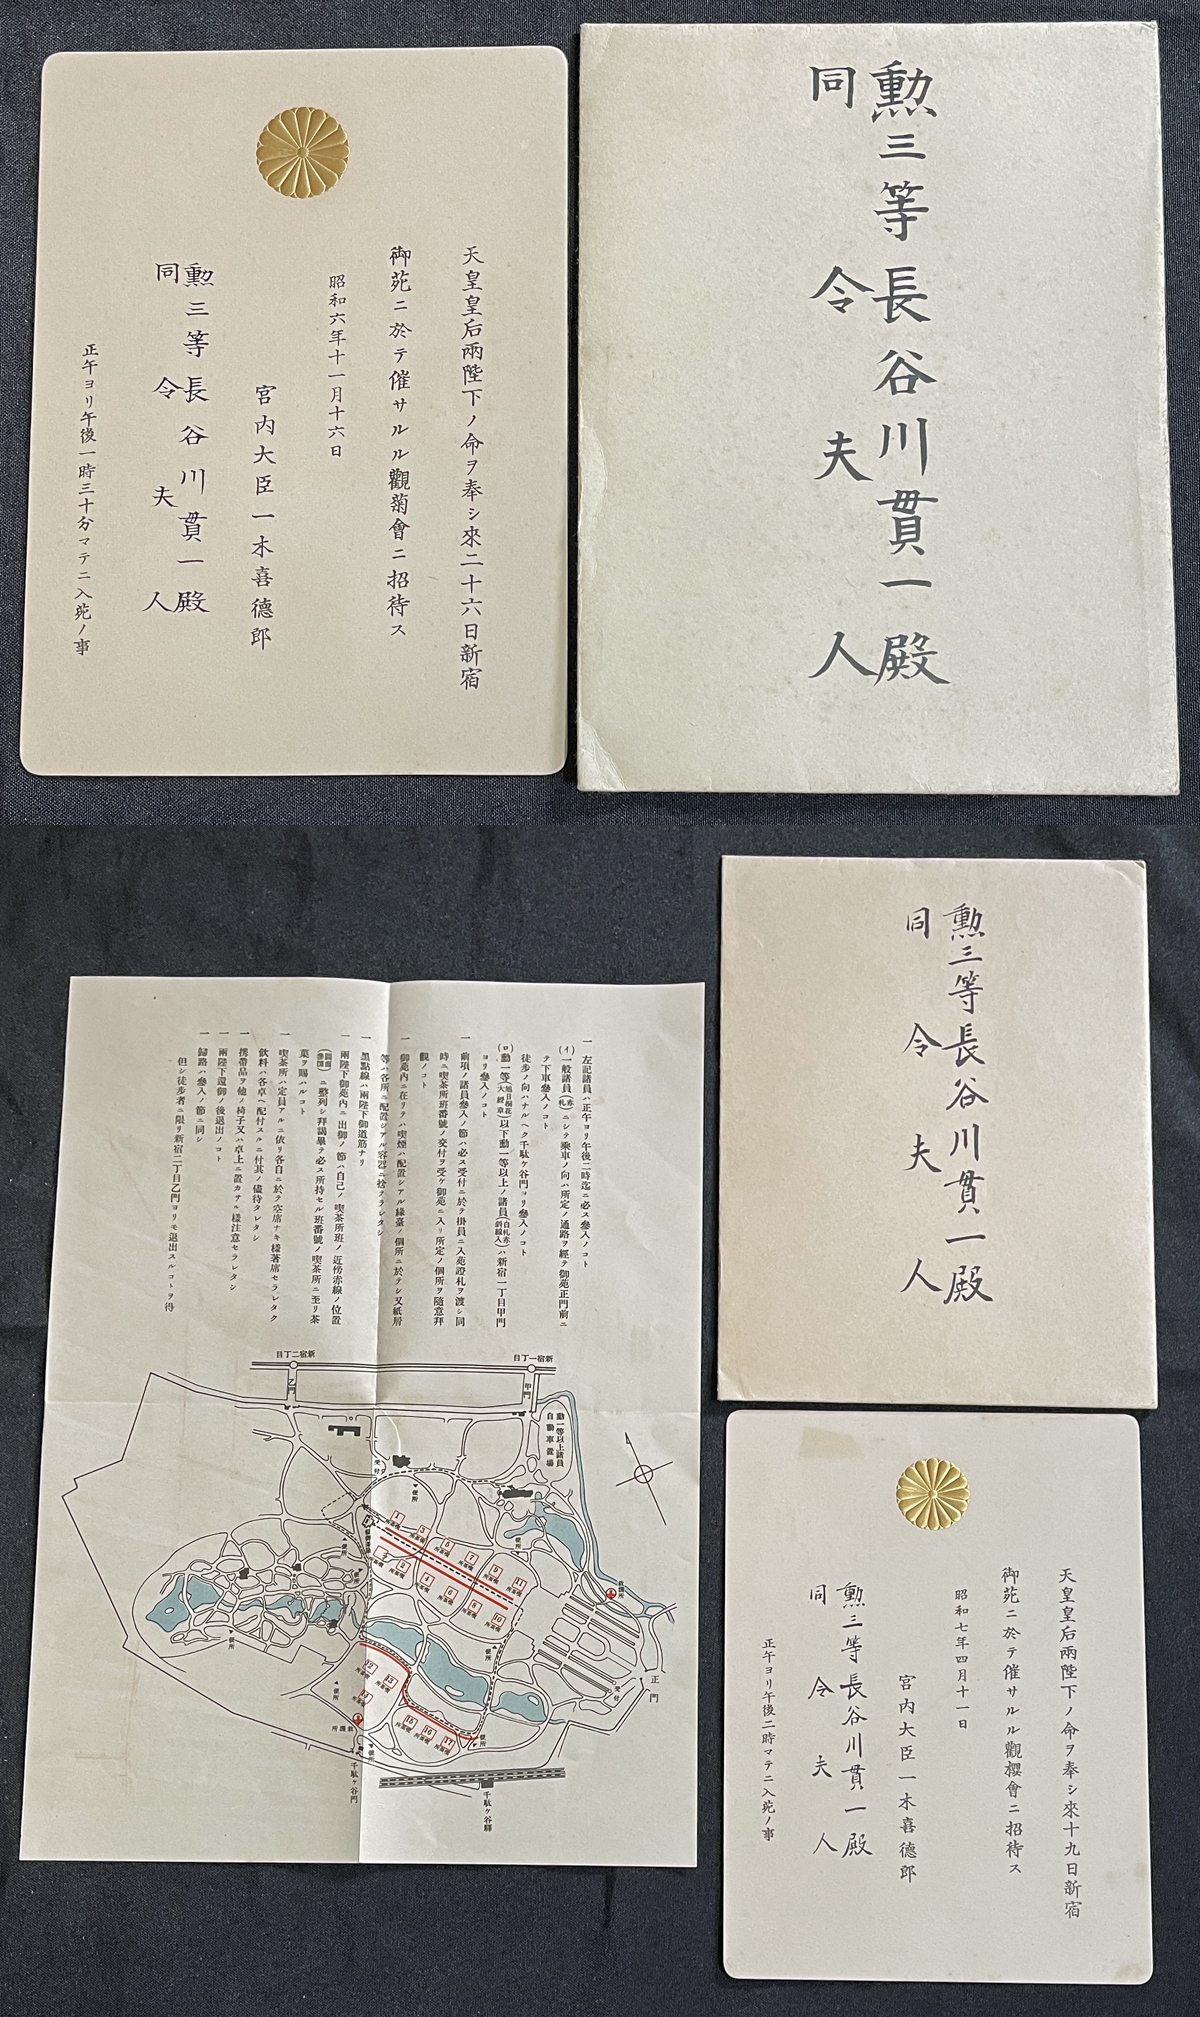 天皇皇后兩陛下ノ命ヲ奉シ來二十六日新宿
御苑ニ於テ催サルル觀菊會ニ招待ス
昭和六年十一月十六日
宮内大臣一木喜德郎
勲三等長谷川貫一殿
同令夫人
正午ヨリ午後一時三十分マテニ入苑ノ事
勲三等長谷川貫一殿
同令夫人
一 左記諸員ハ正午ヨリ午後二時迄ニ必ス參入ノコト
(イ)一般諸員(赤札)ニシテ乘車ノ向ハ所定ノ通路ヲ經テ御苑正門前ニ
テ下車參入ノコト
徒歩ノ向ハナルヘク千駄ケ谷門ヨリ參入ノコト
(ロ)勳一等(旭日桐花大綬章)以下勳一等以上ノ諸員(白札赤斜線入)ハ新宿一丁目甲門
ヨリ參入ノコト
一 前項ノ諸員參入ノ節ハ必ス受付ニ於テ掛員ニ入苑證札ヲ渡シ同
時ニ喫茶所班番號ノ交付ヲ受ケ御苑ニ入リ所定ノ個所ヲ隨意拜
觀ノコト
一 御苑内ニ在リテハ喫煙ハ配置シアル緣臺ノ個所ニ於テシ又紙屑
等ハ各所ニ配置シアル容器ニ捨テラレタシ
一 黑點線ハ兩陛下御道筋ナリ
一 兩陛下御苑内ニ出御ノ節ハ自己ノ喫茶所班ノ近傍赤線ノ位置
(圖面參照)ニ整列シ拜謁畢テ必ス所持セル班番號ノ喫茶所ニ至リ茶
菓ヲ賜ハルコト
一 喫茶所ハ定員アルニ依リ各自ニ於テ空席ナキ樣著席セラレタク
飲料ハ各卓ヘ配付スルニ付其ノ儘待タレタシ
一 携帶品ヲ他ノ椅子又ハ卓上ニ置カサル樣注意セラレタシ
一 兩陛下還御ノ後退出ノコト
一 歸路ハ參入ノ節ニ同シ
但シ徒歩者ニ限リ新宿二丁目乙門ヨリモ退出スルコトヲ得
新宿二丁目
新宿一丁目
乙門
甲門
勳一等以上諸員
自動車置場
受付
便所
便所
便所
便所
便所
便所
便所
便所
救護所
救護所
受付
正門
1 喫茶所
2 喫茶所
3 喫茶所
4 喫茶所
5 喫茶所
6 喫茶所
7 喫茶所
8 喫茶所
9 喫茶所
10 喫茶所
11 喫茶所
12 喫茶所
13 喫茶所
14 喫茶所
15 喫茶所
16 喫茶所
17 喫茶所
千駄ケ谷門
千駄ケ谷驛
勲三等長谷川貫一殿
同令夫人
天皇皇后兩陛下ノ命ヲ奉シ來十九日新宿
御苑ニ於テ催サルル觀櫻會ニ招待ス
昭和七年四月十一日
宮内大臣一木喜德郎
勲三等長谷川貫一殿
同令夫人
正午ヨリ午後二時マテニ入苑ノ事